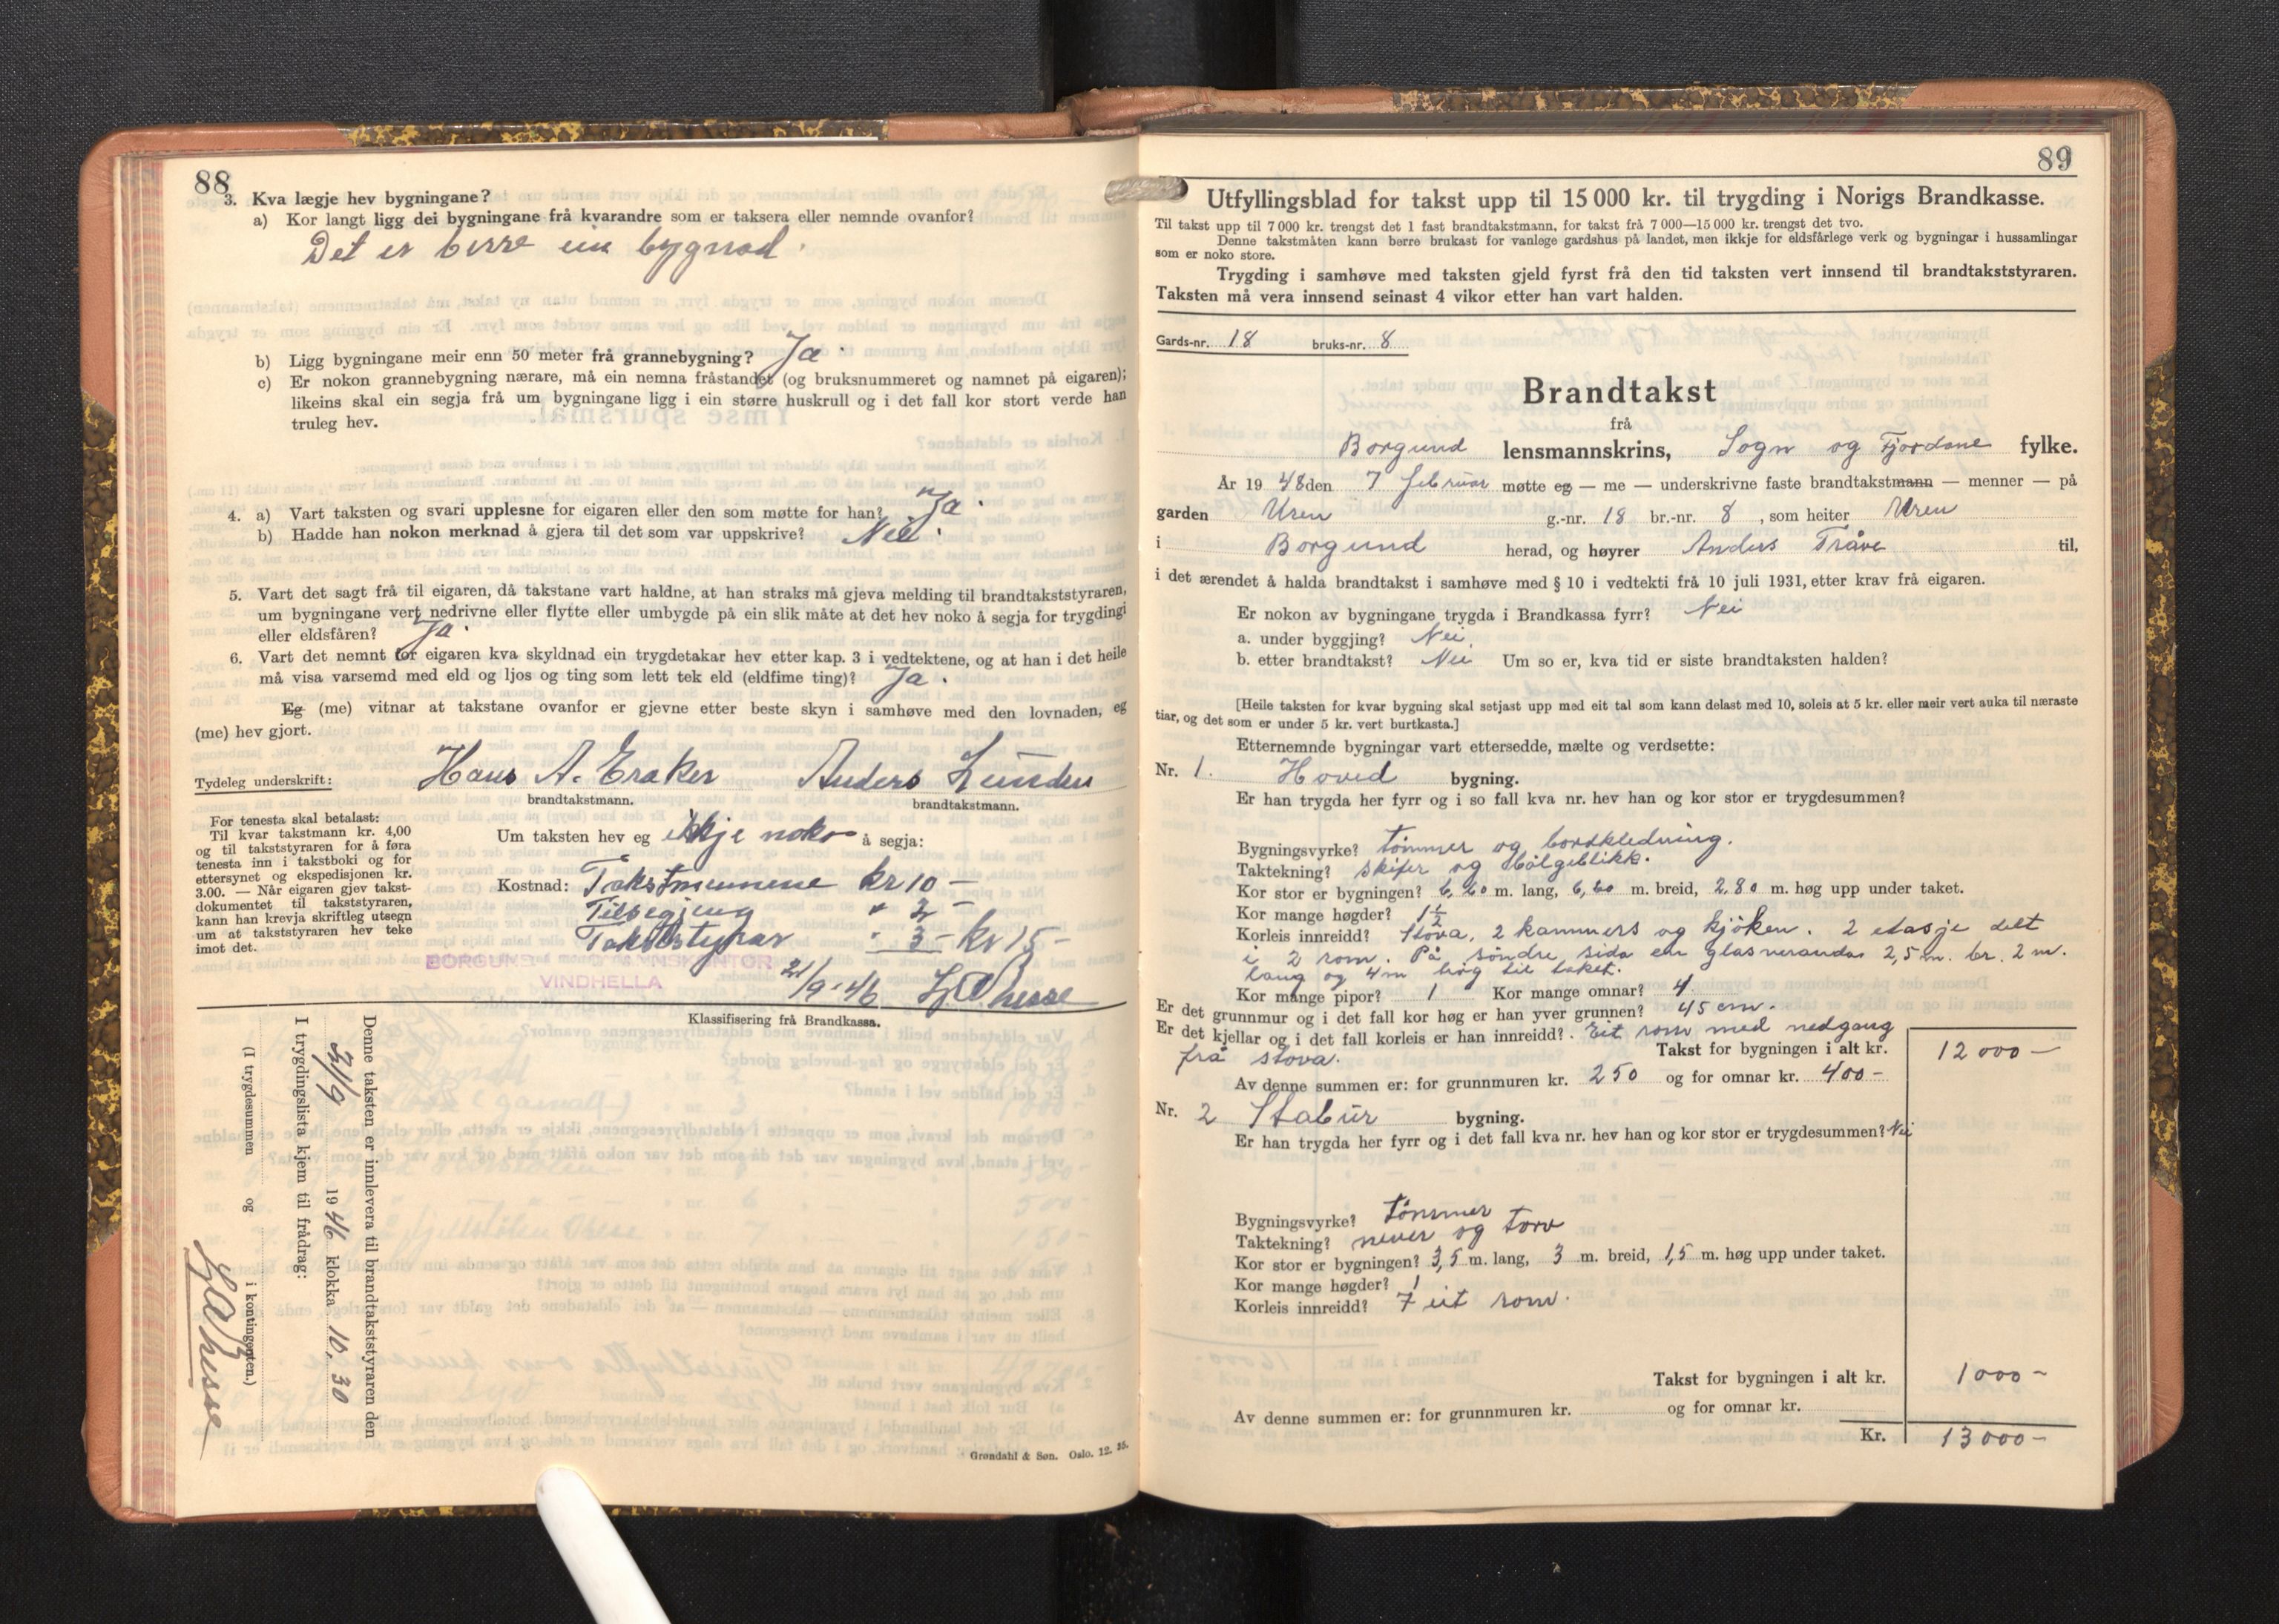 88
3. Kva lægje hev bygningane?
a) Kor langt ligg dei bygningane frå kvarandre som er taksera eller nemnde ovanfor?
Det er berre ein bygnad.
b) Ligg bygningane meir enn 50 meter frå grannebygning? Ja.
c) Er nokon grannebygning nærare, må ein nemna fråstandet (og bruksnummeret og namnet på eigaren);
likeins skal ein segja frå um bygningane ligg i ein større huskrull og i det fall kor stort verde han
truleg hev.
4. a) Vart taksten og svari upplesne for eigaren eller den som møtte for han? Ja.
b) Hadde han nokon merknad å gjera til det som var uppskrive? Nei.
5. Vart det sagt frå til eigaren, då takstane vart haldne, at han straks må gjeva melding til brandtakststyraren,
um bygningane vert nedrivne eller flytte eller umbygde på ein slik måte at det hev noko å segja for trygdingi
eller eldsfåren? Ja.
6. Vart det nemnt for eigaren kva skyldnad ein trygdetakar hev etter kap. 3 i vedtektene, og at han i det heile
må visa varsemd med eld og ljos og ting som lett tek eld (eldfime ting)? Ja.
Eg (me) vitnar at takstane ovanfor er gjevne etter beste skyn i samhøve med den lovnaden, eg
(me) hev gjort.
Tydeleg underskrift: Hans A. Eraker Anders Lunden
brandtakstmann. brandtakstmann.
For tenesta skal betalast:
Til kvar takstmann kr. 4,00
og til takststyraren for å føra
tenesta inn i takstboki og for
ettersynet og ekspedisjonen kr.
3.00. — Når eigaren gjev takst-
dokumentet til takststyraren,
kann han krevja skriftleg utsegn
um at takststyraren hev teke
imot det.
Um taksten hev eg ikkje noko å segja:
Kostnad: Takstmennene kr 10 —
Tilsegjing " 2 —
Takststyrar " 3 — kr 15 —
BORGUND LENSMANNSKONTOR
VINDHELLA
21/9-46
Klassifisering frå Brandkassa.
Denne taksten er innlevera til brandtakststyraren den
21/9 1946 klokka 10,30
I trygdingslista kjem til frådrag:
(I trygdesummen og i kontingenten.)
Grøndahl & Søn. Oslo. 12. 35.
89
Utfyllingsblad for takst upp til 15 000 kr. til trygding i Norigs Brandkasse.
Til takst upp til 7 000 kr. trengst det 1 fast brandtakstmann, for takst frå 7 000—15 000 kr. trengst det tvo.
Denne takstmåten kann berre brukast for vanlege gardshus på landet, men ikkje for eldsfårlege verk og bygningar i hussamlingar
som er noko store.
Trygding i samhøve med taksten gjeld fyrst frå den tid taksten vert innsend til brandtakststyraren.
Taksten må vera innsend seinast 4 vikor etter han vart halden.
Gards-nr. 18 bruks-nr. 8
Brandtakst
frå
Borgund lensmannskrins, Sogn og Fjordane fylke.
År 1948 den 7 februar møtte eg — me — underskrivne faste brandtakstmann — menner — på
garden Uren g.-nr. 18 br.-nr. 8, som heiter Uren
i Borgund herad, og høyrer Anders Tråve til,
i det ærendet å halda brandtakst i samhøve med § 10 i vedtekti frå 10 juli 1931, etter krav frå eigaren.
Er nokon av bygningane trygda i Brandkassa fyrr? Nei
a. under byggjing? Nei
b. etter brandtakst? Nei Um so er, kva tid er siste brandtaksten halden?
[Heile taksten for kvar bygning skal setjast upp med eit tal som kann delast med 10, soleis at 5 kr. eller meir vert auka til næraste
tiar, og det som er under 5 kr. vert burtkasta.]
Etternemnde bygningar vart ettersedde, mælte og verdsette:
Nr. 1. Hoved bygning.
Er han trygda her fyrr og i so fall kva nr. hev han og kor stor er trygdesummen?
Bygningsvyrke? tømmer og bordkledning.
Taktekning? skifer og bølgeblikk.
Kor stor er bygningen? 6,60 m. lang, 6,60 m. breid, 2,80 m. høg upp under taket.
Kor mange høgder? 1½
Korleis innreidd? Stova, 2 kammers og kjøken. 2 etasje delt
i 2 rom. På søndre sida ein glasveranda 2,5 m. br. 2 m.
lang og 4m høg til taket.
Kor mange pipor? 1 Kor mange omnar? 4
Er det grunnmur og i det fall kor høg er han yver grunnen? 45 cm.
Er det kjellar og i det fall korleis er han innreidd? Eit rom med nedgang
frå stova.
Takst for bygningen i alt kr. 12 000 —
Av denne summen er: for grunnmuren kr. 250 og for omnar kr. 400 —
Nr. 2 Stabur bygning.
Er han trygda her fyrr og i det fall kva nr. hev han og kor stor er trygdesummen? Nei
Bygningsvyrke? tømmer
Taktekning? never og torv
Kor stor er bygningen? 3,5 m. lang, 3 m. breid, 1,5 m. høg upp under taket.
Kor mange høgder? 1
Korleis innreidd? I eit rom.
Takst for bygningen i alt kr. 1000 —
Av denne summen er: for grunnmuren kr. og for omnar kr.
Kr. 13 000 —